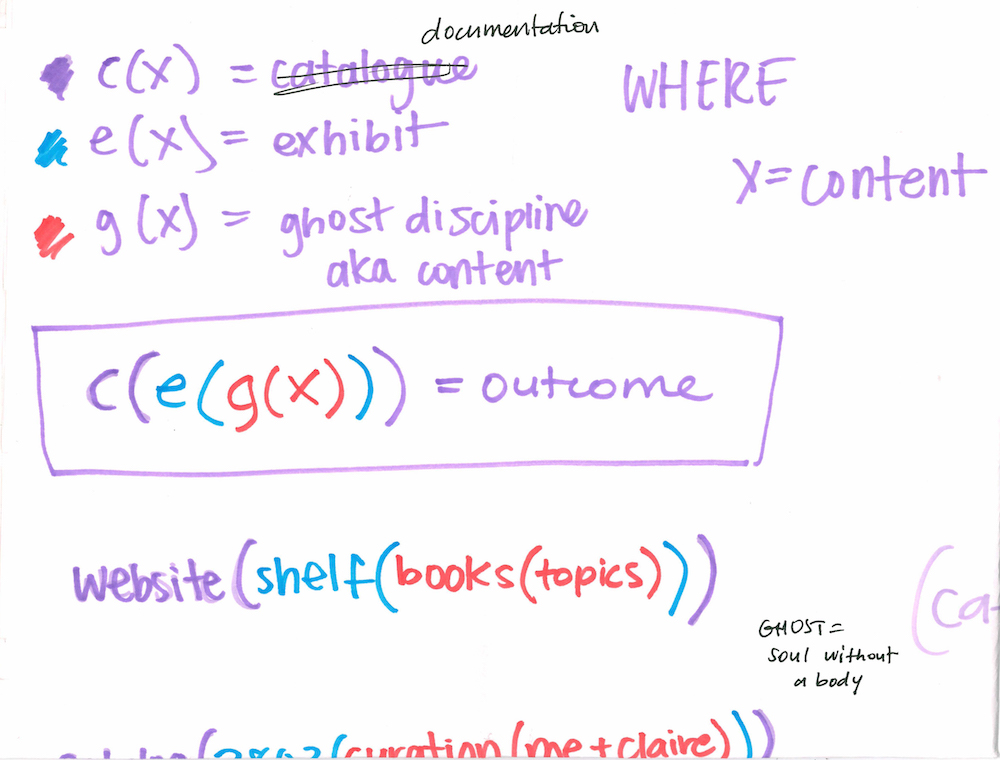 documentation
c(x) = catalogue
WHERE
e(x) = exhibit
x = content
g(x) = ghost discipline
aka content
c(e(g(x))) = outcome
website(shelf(books(topics)))
(ca
GHOST =
soul without
a body
(curation(me+claire)))